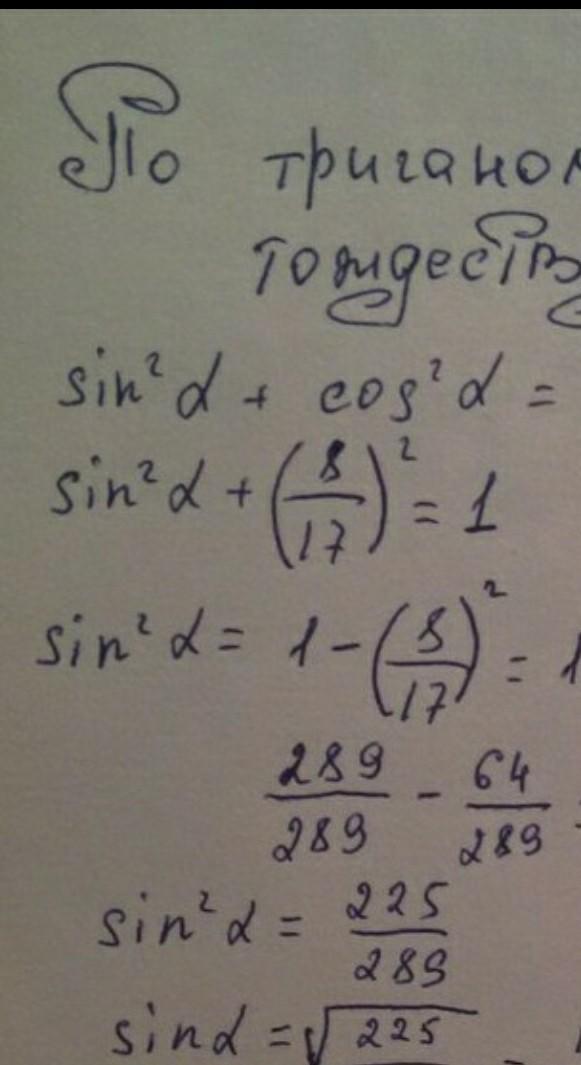 По тригано
тождеств
sin² α + cos² α =
sin² α + (8/17)² = 1
sin² α = 1 - (8/17)² = 1
289/289 - 64/289
sin² α = 225/289
sin α = √225